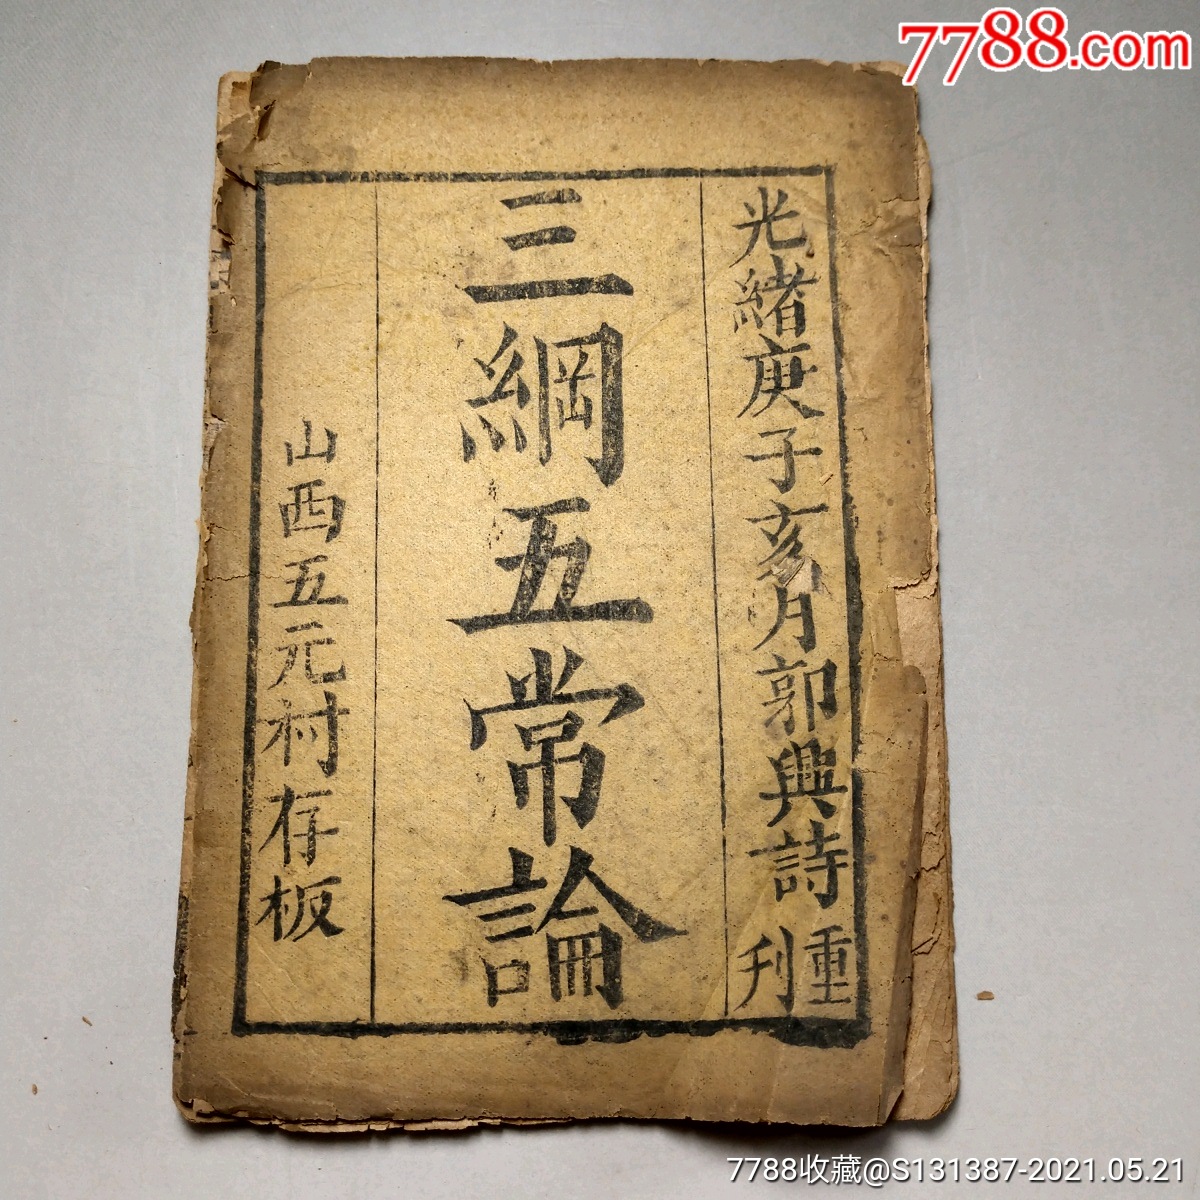 7788.com
光緒庚子亥月郭興詩重刊
三綱五常論
山西五元村存板
7788收藏@S131387-2021.05.21